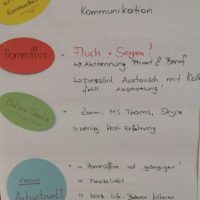 Kommunikation
Homeoffice
Fluch + Segen!
Abtrennung Privat & Beruf
persönl. Austausch mit Koll
fehlt
Online Tools
Zoom, MS Teams, Skype
wenig Host-Erfahrung
neue
Arbeitswelt
Homeoffice ist gängiger
Flexibilität
Work-Life-Balance höherer